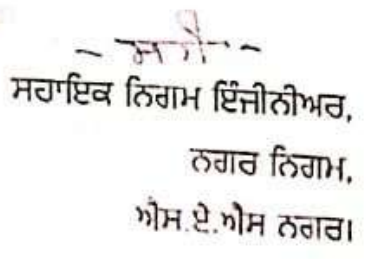 - ਸਹੀ -
ਸਹਾਇਕ ਨਿਗਮ ਇੰਜੀਨੀਅਰ,
ਨਗਰ ਨਿਗਮ,
ਐਸ.ਏ.ਐਸ ਨਗਰ।